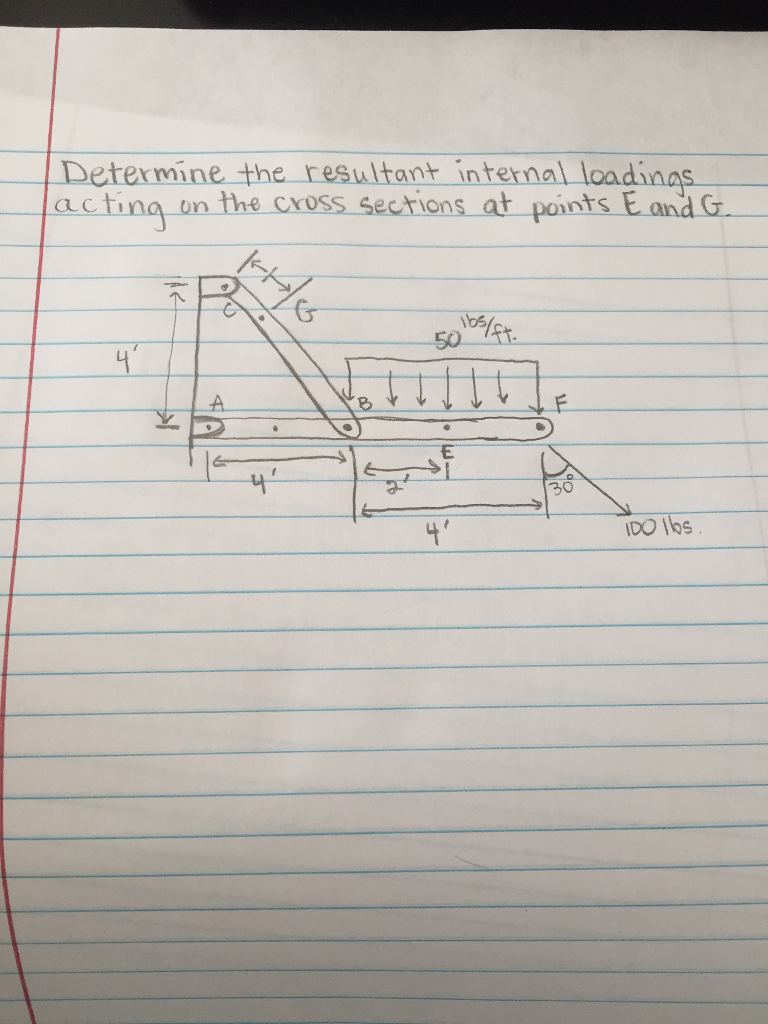 Determine the resultant internal loadings
acting on the cross sections at points E and G.
C
G
4'
50 lbs/ft.
A
B
F
E
4'
2'
30°
4'
100 lbs.